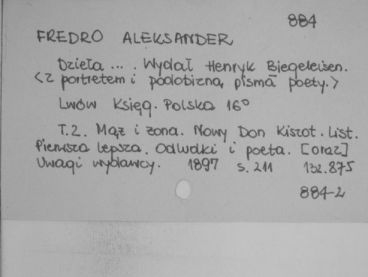 884
FREDRO ALEKSANDER
Dzieła ... . Wydał Henryk Biegeleisen.
<Z portretem i podobizną pisma poety.>
Lwów Księg. Polska 16°
T.2. Mąż i żona. Nowy Don Kiszot. List.
Pierwsza lepsza. Odludki i poeta. [oraz]
Uwagi wydawcy. 1897 s. 211 132.875
884-2